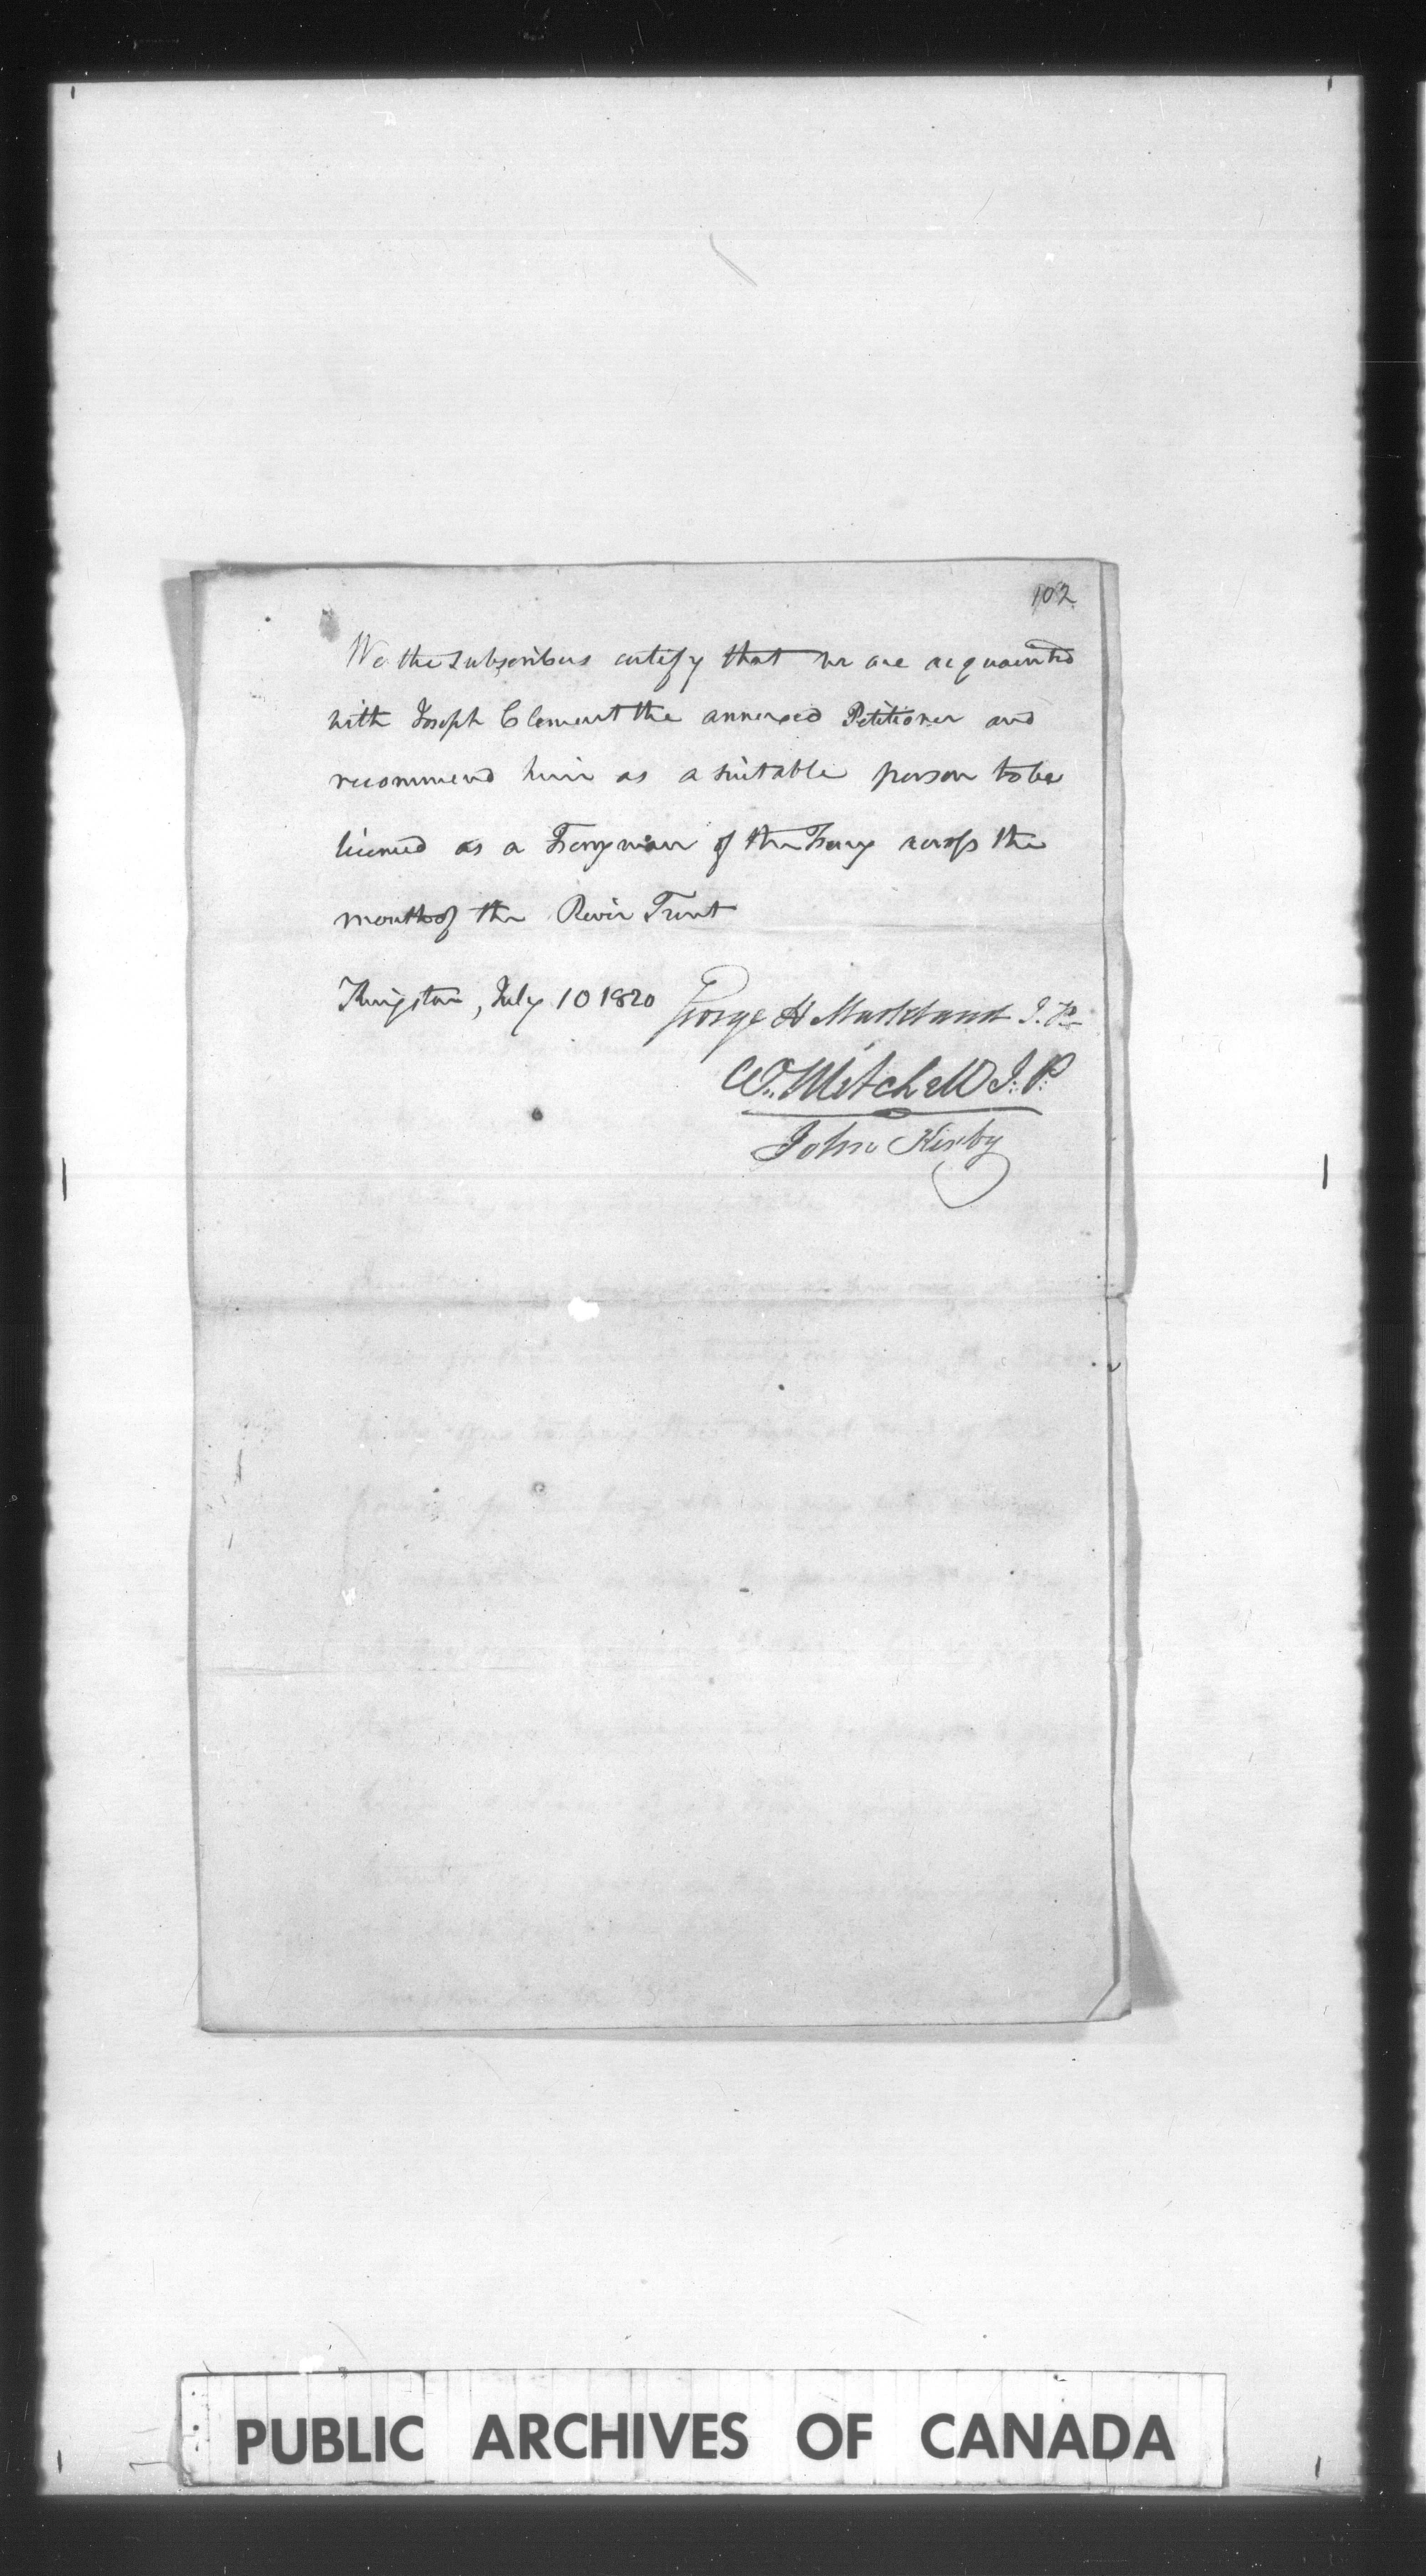 102
We the subscribers certify that we are acquainted
with Joseph Clement the annexed Petitioner and
recommend him as a suitable person to be
licensed as a Ferryman of the Ferry across the
mouth of the River Trent
Kingston, July 10 1820 George H Markland J. P.
W. Mitchell J. P.
John Kirby
PUBLIC ARCHIVES OF CANADA